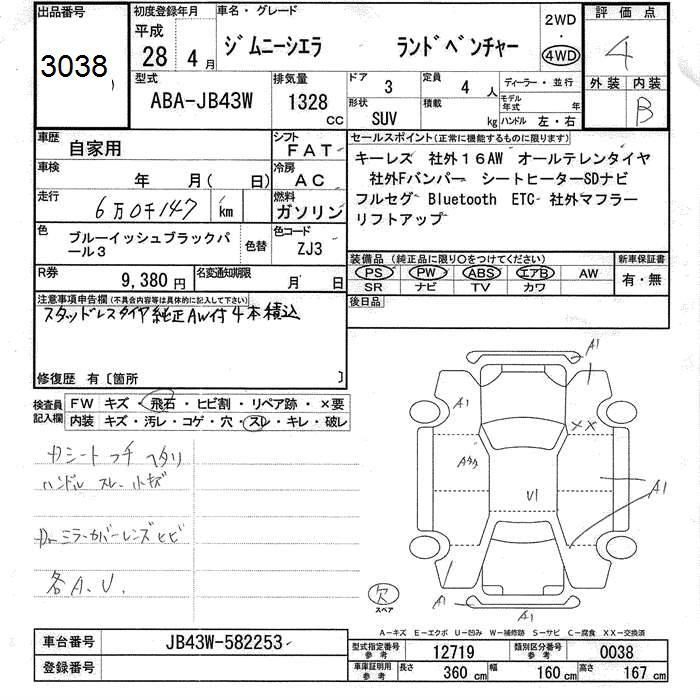 出品番号
3038
初度登録年月
平成
28 4 月
車名・グレード
ジムニーシエラ ランドベンチャー
2WD
・
4WD
評価点
4
外装 内装
B
型式
ABA-JB43W
排気量
1328
CC
ドア
3
形状
SUV
定員
4 人
積載
kg
ディーラー・並行
モデル年式 年
ハンドル 左・右
車歴
自家用
シフト
FAT
車検
年 月( 日)
冷房
AC
走行
6万0千147 km
燃料
ガソリン
色
ブルーイッシュブラックパ
ール3
色替
色コード
ZJ3
R券
9,380 円
名変通知期限
月 日
セールスポイント(正常に機能するものに限ります)
キーレス 社外16AW オールテレンタイヤ
社外Fバンパー シートヒーターSDナビ
フルセグ Bluetooth ETC 社外マフラー
リフトアップ
装備品(純正品に限り○をつけてください)
PS PW ABS エアB AW
SR ナビ TV カワ
新車保証書
有・無
後日品
注意事項申告欄(不具合内容等は具体的に記入して下さい)
スタッドレスタイヤ純正AW付4本積込
修復歴 有〔箇所 〕
検査員
記入欄
FW キズ・飛石・ヒビ割・リペア跡・×要
内装 キズ・汚レ・コゲ・穴・スレ・キレ・破レ
シートフチ ヘタリ
ハンドル スレ 小キズ
Drミラーカバーレンズヒビ
各A.U.
A1
A1
XX
A1
U1
A1
A1
A
A1
欠
スペア
A-キズ E-エクボ U-凹み W-補修跡 S-サビ C-腐食 XX-交換済
車台番号
JB43W-582253
登録番号
型式指定番号
参考
12719
類別区分番号
参考
0038
車庫証明用
参考
長さ 360 cm 幅 160 cm 高さ 167 cm